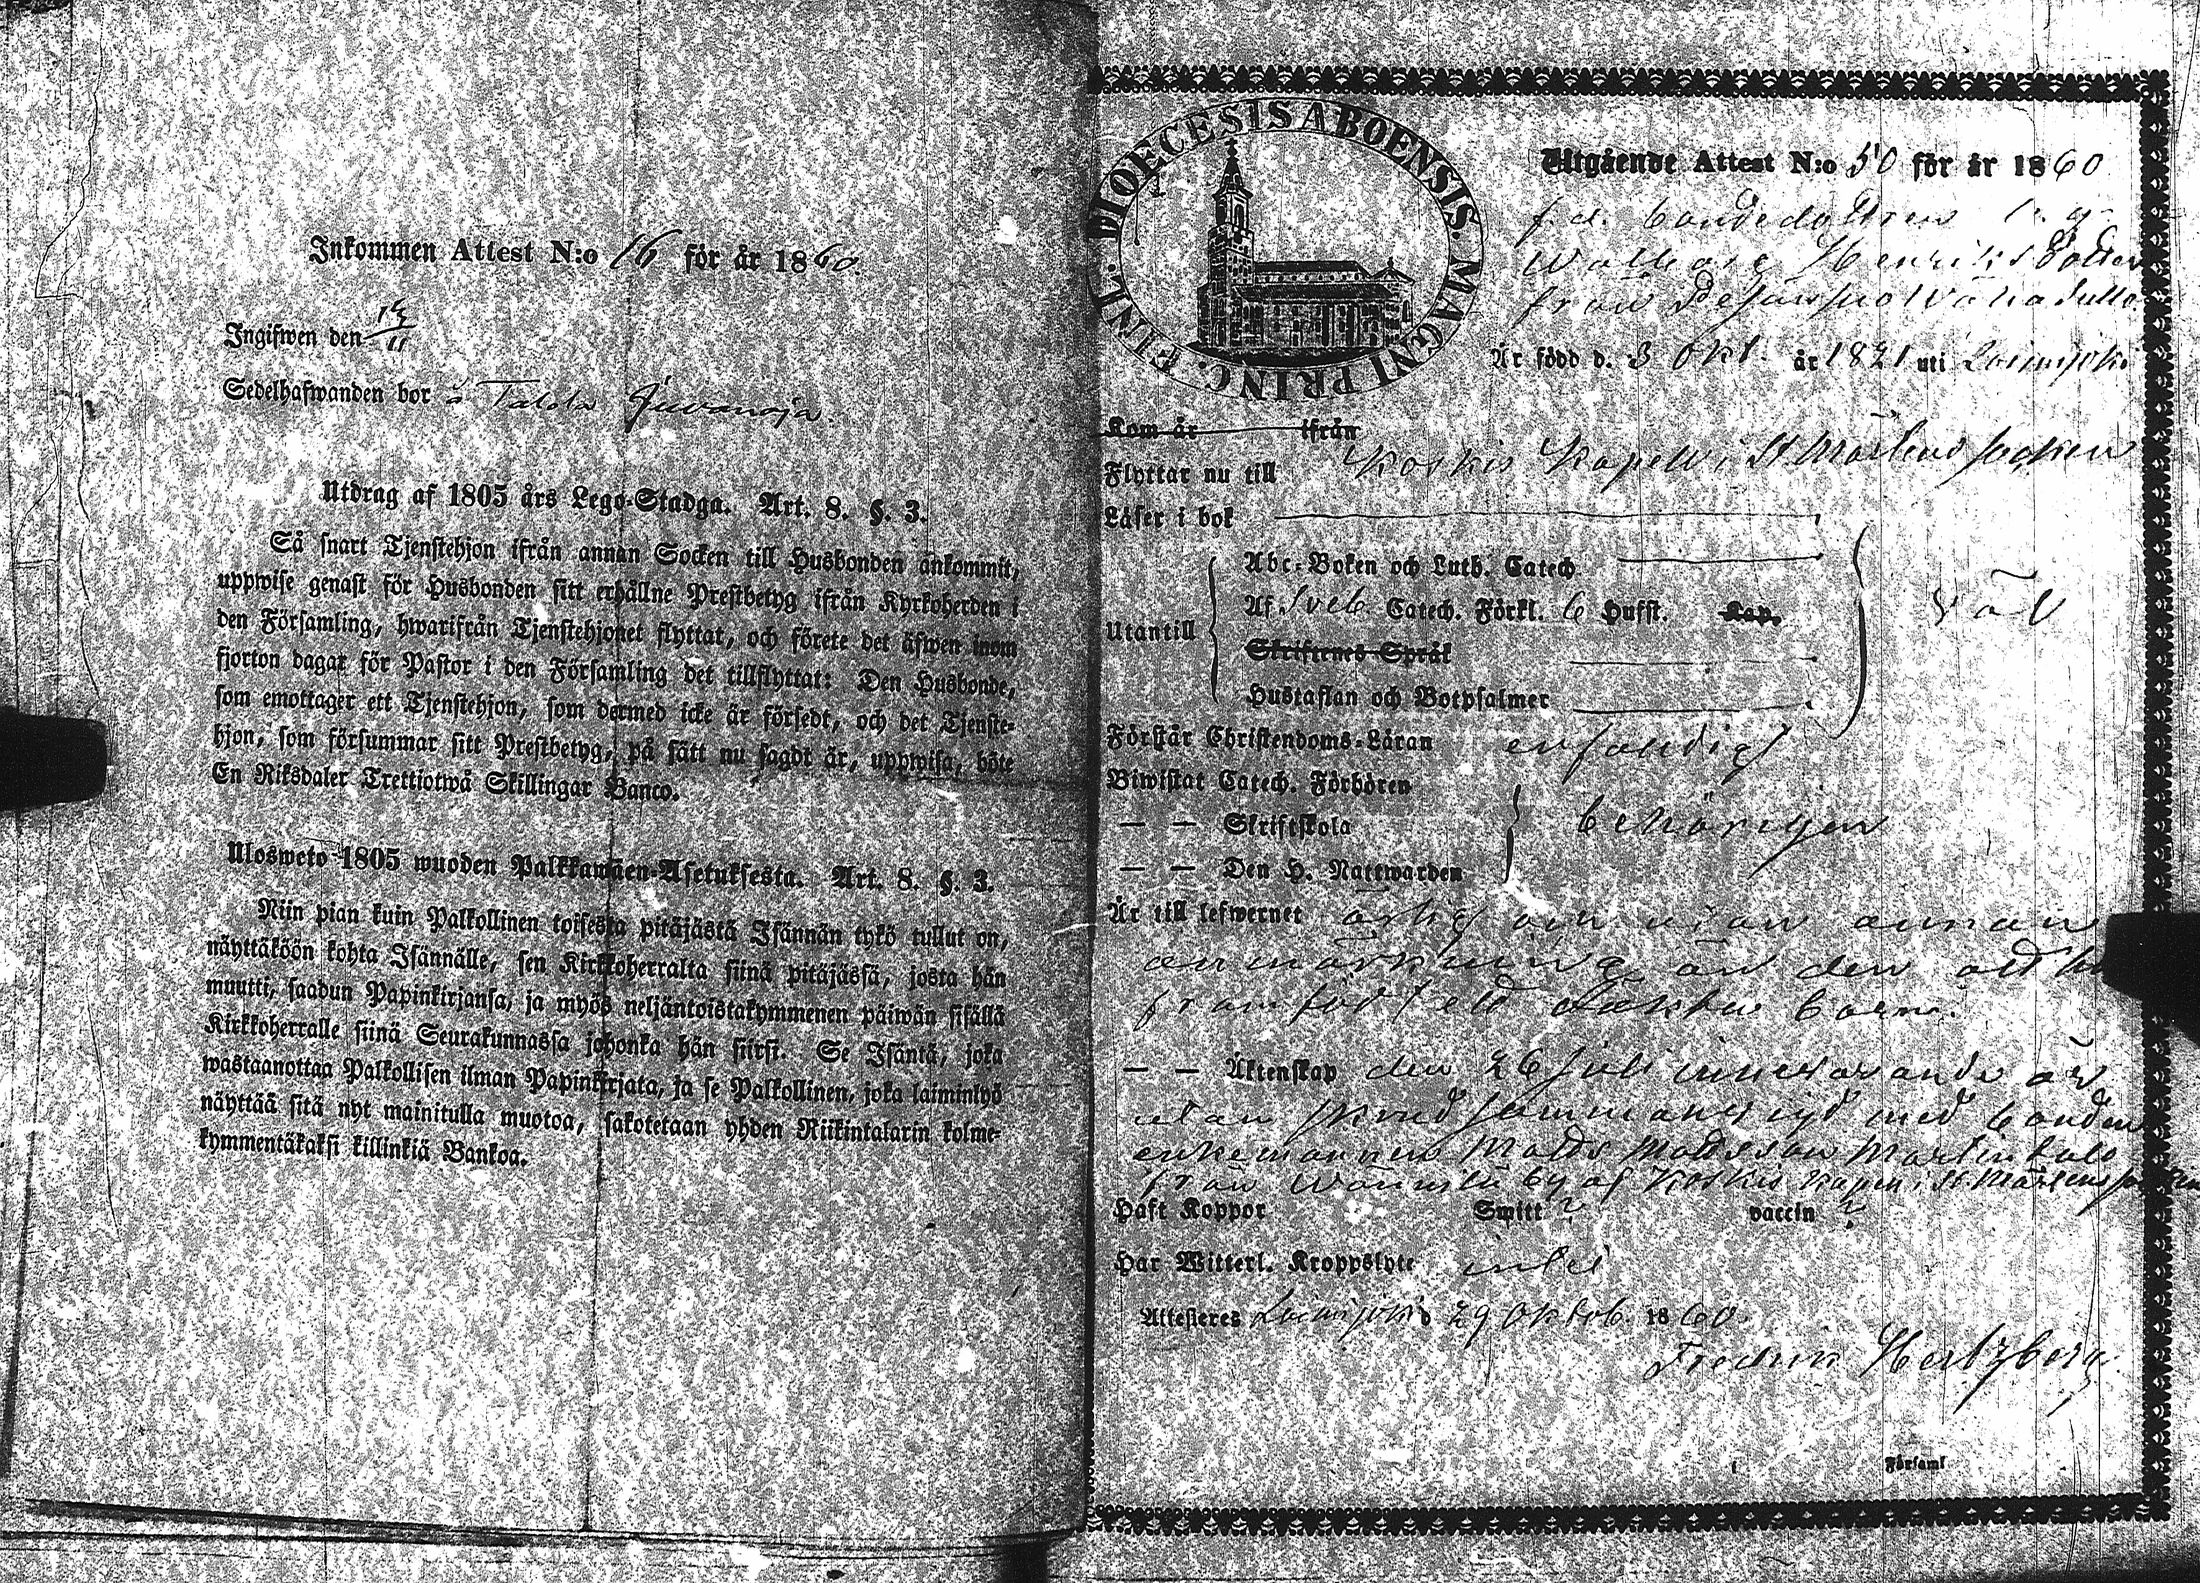 Inkommen Attest N:o 16 för år 1860.
Ingifwen den 14/11
Sedelhafwanden bor å Talola Juvanoja.
Utdrag af 1805 års Lego-Stadga. Art. 8. §. 3.
Så snart Tjenstehjon ifrån annan Socken till Husbonden ankommit,
uppwise genast för Husbonden sitt erhållne Prestbetyg ifrån Kyrkoherden i
den Församling, hwarifrån Tjenstehjonet flyttat, och förete det äfwen inom
fjorton dagar för Pastor i den Församling det tillflyttat: Den Husbonde,
som emottager ett Tjenstehjon, som dermed icke är försedt, och det Tjenste-
hjon, som försummar sitt Prestbetyg, på sätt nu sagdt är, uppwisa, böte
En Riksdaler Trettiotwå Skillingar Banco.
Ulosweto 1805 wuoden Palkkawäen-Asetuksesta. Art. 8. §. 3.
Niin pian kuin Palkollinen toisesta pitäjästä Isännän tykö tullut on,
näyttäköön kohta Isännälle, sen Kirkkoherralta siinä pitäjässä, josta hän
muutti, saadun Papinkirjansa, ja myös neljäntoistakymmenen päiwän sisällä
Kirkkoherralle siinä Seurakunnassa johonka hän siirsi. Se Isäntä, joka
wastaanottaa Palkollisen ilman Papinkirjata, ja se Palkollinen, joka laiminlyö
näyttää sitä nyt mainitulla muotoa, sakotetaan yhden Riikintalarin kolme-
kymmentäkaksi killinkiä Bankoa.
DIOECESIS ABOENSIS. MAGNI PRINC. FINL.
Utgående Attest N:o 50 för år 1860
f.d. bondedottren
Walborg Henriksdotter
från
Är född d. 3 Okt. år 1821 uti Loimijoki
Kom år ifrån
Flyttar nu till Koskis Kapell i St Mårtens socken
Läser i bok
Abc-Boken och Luth. Catech.
Utantill Af Sveb Catech. Förkl. 6 Hufst. Kap. väl
Skriftenes Språk
Hustaflan och Botpsalmer
Förstår Christendoms-Läran enfaldigt
Biwistat Catech. Förhören
— — Skriftskola behörigen
— — Den H. Nattwarden
Är till lefwernet ärlig och utan annan
anmärkning än den att ha
framfödt äkta barn.
— — Äktenskap den 26 Juli innevarande år
utan skrud sammanvigd med bonden
enkemannen Matts Mattsson Martintalo
från by af Koskis Kapell i St Mårtens socken
Haft Koppor Smitt ? vaccin ?
Har Witterl. Kroppslyte intet
Attesteres Loimijoki d 29 Oktob. 1860.
Fredrik Hertzberg
Församl